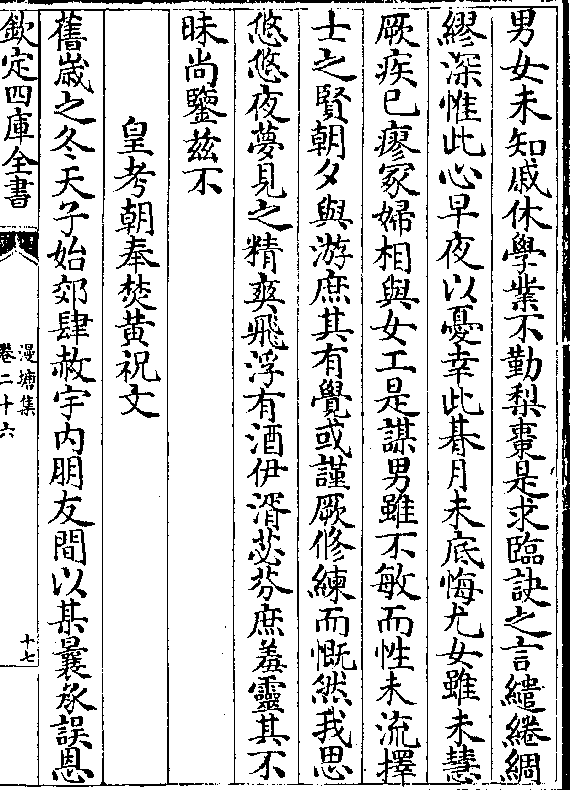 男女未知戚休學業不勤梨棗是求臨訣之言繾綣綢
繆深惟此心早夜以憂幸此朞月未底悔尤女雖未慧
厥疾已瘳冢婦相與女工是謀男雖不敏而性未流擇
士之賢朝夕與游庶其有覺或謹厥修練而慨然我思
悠悠夜夢見之精爽飛浮有酒伊湑苾芬庶羞靈其不
昧尚鑒兹不
皇考朝奉焚黄祝文
舊歲之冬天子始郊肆赦宇内朋友間以某曩忝誤恩
欽定四庫全書
漫塘集
卷二十六
十七